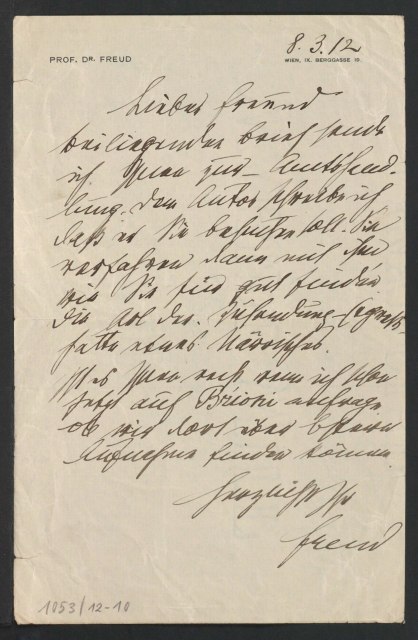 PROF. DR. FREUD
8. 3. 12
WIEN, IX. BERGGASSE 19.
Lieber Freund
Beiliegenden Brief sende
ich Ihnen zur Amtshand-
lung. Dem Autor schreibe ich
daß er Sie besuchen soll. Sie
verfahren dann mit ihm
wie Sie für gut finden
Die Art der Zusendung
hatte etwas Närrisches.
Ist es Ihnen recht wenn ich schon
jetzt auf Brioni anfrage
ob wir dort über Ostern
Aufnahme finden können
Herzlichst Ihr
Freud
1053/12-10